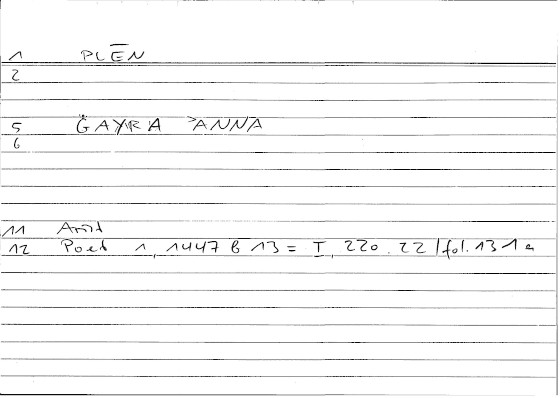 1 PLĒN
2
5 ĠAYRA ʾANNA
6
11 Arist
12 Poet 1, 1447 b 13 = I, 220.22 / fol. 131 a